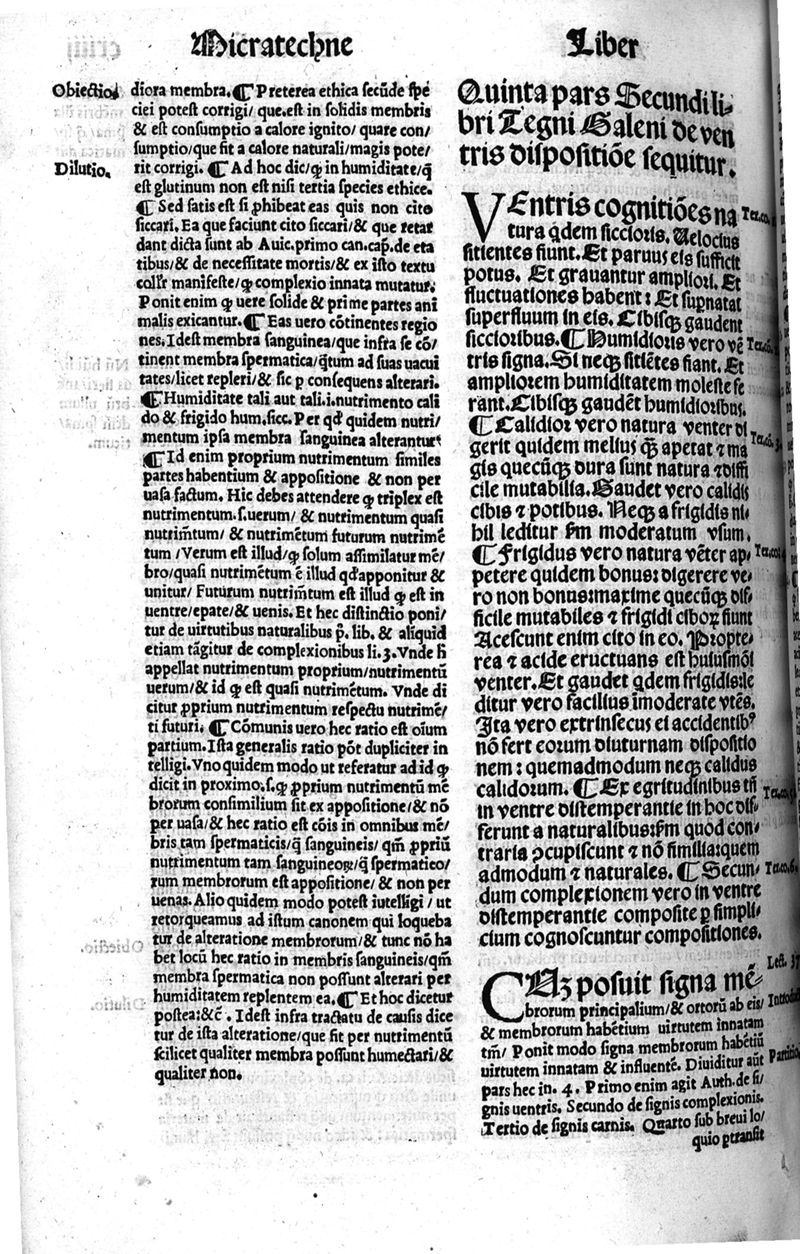 Micratechne
Liber
Obiectio.
diora membra.¶ Preterea ethica secũde spé
ciei potest corrigi/ que.est in solidis membris
& est consumptio a calore ignito/ quare con/
sumptio/que fit a calore naturali/magis pote/
Dilutio.
rit corrigi. ¶ Ad hoc dic/ꝙ in humiditate/q̃
est glutinum non est nisi tertia species ethice.
¶ Sed satis est si ꝓhibeat eas quis non cito
siccari. Ea que faciunt cito siccari/& que retar
dant dicta sunt ab Auic.primo can.cap̃.de eta
tibus/& de necessitate mortis/& ex isto textu
manifeste/ꝙ complexio innata mutatur.
Ponit enim ꝙ uere solide & prime partes ani
malis exicantur.¶ Eas uero cõtinentes regio
nes.Idest membra sanguinea/que infra se cõ/
tinent membra spermatica/q̃tum ad suas uacui
tates/licet repleri/& sic p consequens alterari.
¶ Humiditate tali aut tali.i.nutrimento cali
do & frigido hum.sicc.Per qđ quidem nutri/
mentum ipsa membra sanguinea alterantur.
¶ Id enim proprium nutrimentum similes
partes habentium & appositione & non per
uasa factum. Hic debes attendere ꝙ triplex est
nutrimentum.s.uerum/ & nutrimentum quasi
nutrim̃tum/ & nutrimẽtum futurum nutrimẽ
tum /Verum est illud/ꝙ solum assimilatur mẽ/
bro/quasi nutrimẽtum ẽ illud qđ apponitur &
unitur/ Futurum nutrim̃tum est illud ꝙ est in
uentre/epate/& uenis. Et hec distinctio poni/
tur de uirtutibus naturalibus p̃. lib. & aliquid
etiam tãgitur de complexionibus li.3.Vnde h̃
appellat nutrimentum proprium/nutrimentũ
uerum/& id ꝙ est quasi nutrimẽtum. Vnde di
citur ꝓprium nutrimentum respectu nutrimẽ/
ti futuri. ¶ Cõmunis uero hec ratio est oĩum
partium.Ista generalis ratio põt dupliciter in
telligi.Vno quidem modo ut referatur ad id ꝙ
dicit in proximo.s.ꝙ ꝓprium nutrimentũ mẽ
brorum consimilium sit ex appositione/& nõ
per uasa/& hec ratio est cõis in omnibus mẽ/
bris tam spermaticis/q̃ sanguineis/ qm̃ ꝓpriũ
nutrimentum tam sanguineoꝝ/q̃ spermatico/
rum membrorum est appositione/ & non per
uenas.Alio quidem modo potest iutelligi / ut
retorqueamus ad istum canonem qui loqueba
tur de alteratione membrorum/& tunc nõ ha
bet locũ hec ratio in membris sanguineis/qm̃
membra spermatica non possunt alterari per
humiditatem replentem ea.¶ Et hoc dicetur
postea:&c̃ . Idest infra tractatu de causis dice
tur de ista alteratione/que fit per nutrimentũ
scilicet qualiter membra possunt humectari/&
qualiter non.
Quinta pars Secundi li/
bri Tegni Galeni de ven
tris dispositiõe sequitur.
VEntris cognitiões na
tura q̃dem siccioris. Velocius
sitientes fiunt.Et paruus eis sufficit
potus. Et grauantur ampliori. Et
fluctuationes habent: Et supnatat
superfluum in eis. Cibisqꝫ gaudent
siccioribus.¶ Humidioris vero vẽ
tris signa.Si neqꝫ sitiẽtes fiant. Et
ampliorem humiditatem moleste fe
rant.Cibisqꝫ gaudẽt humidioribus.
¶ Calidior vero natura venter di
gerit quidem melius q̃ꝫ apetat ⁊ ma
gis quecũqꝫ dura sunt natura ⁊ diffi
cile mutabilia.Gaudet vero calidis
cibis ⁊ potibus. Neqꝫ a frigidis ni/
hil leditur fm̃ moderatum vsum.
¶ Frigidus vero natura vẽter ap/
petere quidem bonus: digerere ve/
ro non bonus:maxime quecũqꝫ dif/
ficile mutabiles ⁊ frigidi ciboꝝ fiunt
Acescunt enim cito in eo. Propte/
rea ⁊ acide eructuans est huiusmõi
venter.Et gaudet q̃dem frigidis:le
ditur vero facilius imoderate vtẽs.
Ita vero extrinsecus ei accidentibꝰ
nõ fert eorum diuturnam dispositio
nem: quemadmodum neqꝫ calidus
calidorum. ¶ Ex egritudinibus tñ
in ventre distemperantie in hoc dif/
ferunt a naturalibus:fm̃ quod con/
traria ꝯcupiscunt ⁊ nõ similia:quem
admodum ⁊ naturales. ¶ Secun/
dum complexionem vero in ventre
distemperantie composite ꝑ simpli/
cium cognoscuntur compositiones.
CAꝫ posuit signa mẽ/
brorum principalium/& ortorũ ab eis/
& membrorum habẽtium uirtutem innatam
tm̃/ Ponit modo signa membrorum habẽtiũ
uirtutem innatam & influentẽ. Diuiditur aũt
pars hec in. 4. Primo enim agit Auth.de si/
gnis uentris. Secundo de signis complexionis.
Tertio de signis carnis. Quarto sub breui lo/
quio ptransit